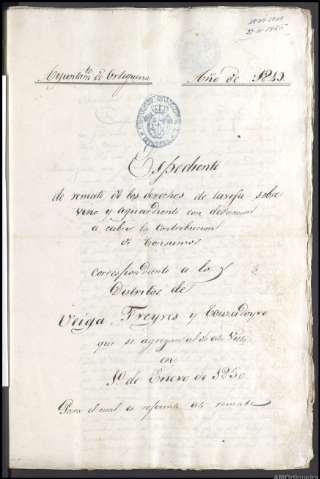 Ayuntam.to de Ortigueira
Año de 1849
Expediente
de remate de los derechos de tarifa sobre
vino y aguardiente con destino
a cubrir la Contribucion
de Consumos
correspondiente a los
Distritos de
Veiga, Freyres y Couzadoyro
que se agregan al de esta Villa
en
1º de Enero de 1850
Para el cual se reforma este remate